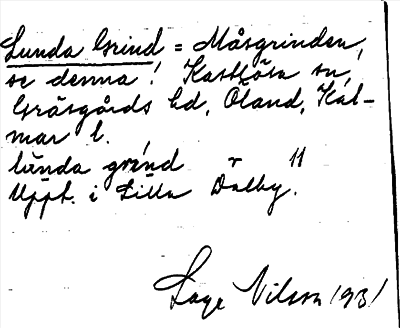 Lunda Grind = Måsgrinden,
se denna! Kastlösa sn,
Gräsgårds hd, Öland, Kal-
mar l.
lu̇nda grind r 11
Uppt. i Lilla Dalby.
Sage Nilson 1931